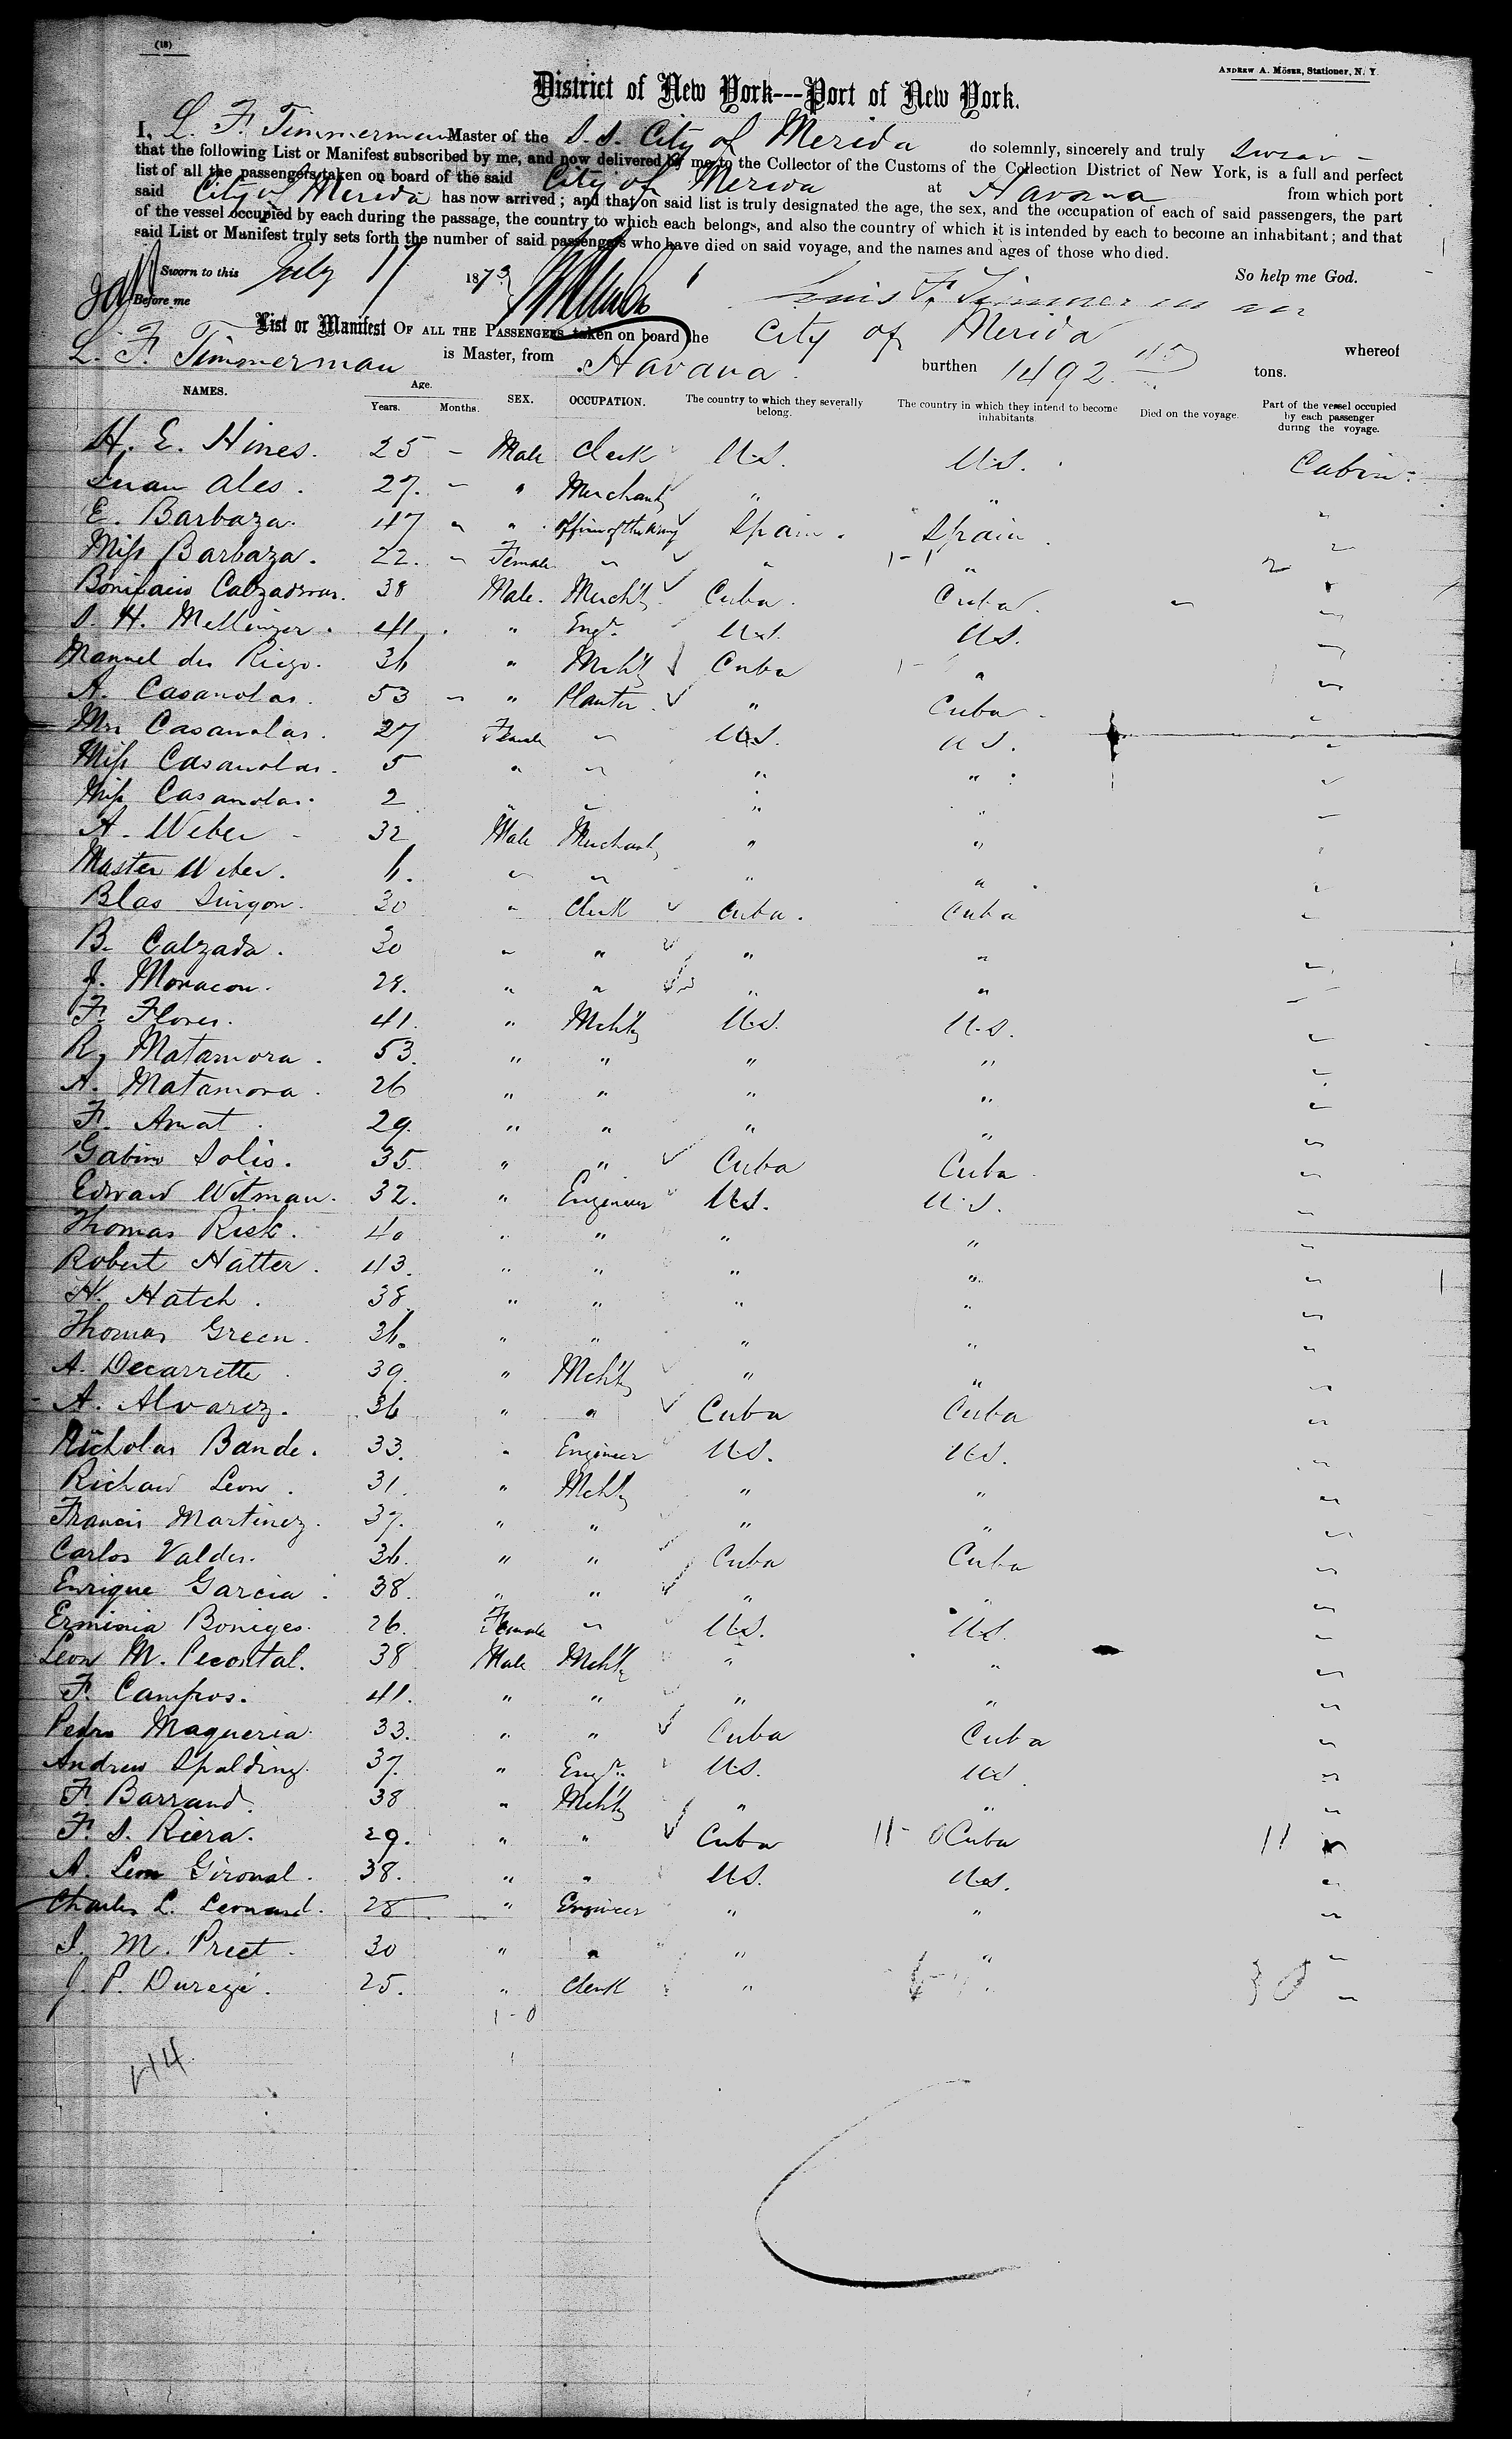 (18)
ANDREW A. MÖSER, Stationer, N. Y.
District of New York---Port of New York.
I, L. F. Timmerman Master of the S.S. City of Merida do solemnly, sincerely and truly swear -
that the following List or Manifest subscribed by me, and now delivered by me to the Collector of the Customs of the Collection District of New York, is a full and perfect
list of all the passengers taken on board of the said City of Merida at Havana from which port
said City of Merida has now arrived; and that on said list is truly designated the age, the sex, and the occupation of each of said passengers, the part
of the vessel occupied by each during the passage, the country to which each belongs, and also the country of which it is intended by each to become an inhabitant; and that
said List or Manifest truly sets forth the number of said passengers who have died on said voyage, and the names and ages of those who died.
Sworn to this July 17 1873 So help me God.
Before me Louis F. Timmerman
List or Manifest OF ALL THE PASSENGERS taken on board the City of Merida whereof
L. F. Timmerman is Master, from Havana. burthen 1492 tons.
NAMES. Age. Years. Months. SEX. OCCUPATION. The country to which they severally belong. The country in which they intend to become inhabitants. Died on the voyage. Part of the vessel occupied by each passenger during the voyage.
H. E. Hines. 25 - Male Clerk U.S. U.S. Cabin.
Juan Ales. 27. - " Merchant " " "
E. Barbaza. 47 " " officer of the Army Spain. Spain. "
Miss Barbaza. 22. - Female " " 1-1 " 2 "
Bonifacio Calzadrvas. 38 Male. Mercht. Cuba. Cuba. "
S. H. Mellinger. 41. " Engr. U.S. U.S. "
Manuel des Riego. 36 " Mcht Cuba 1- " "
A. Casanolas. 53 " " Planter. " Cuba. "
Mrs Casanolas. 27 Female " U.S. U.S. "
Miss Casanolas. 5 " " " " "
Miss Casanolas. 2 " " " " "
A. Weber - 32 Male Merchant " " "
Master Weber. 6. " " " " "
Blas Singon. 30 " Clerk Cuba. Cuba "
B. Calzada. 30 " " " " "
J. Monacon. 28. " " " " "
F. Flores. 41. " Mcht U.S. U.S. "
R. Matamora. 53. " " " " "
A. Matamora. 26 " " " " "
F. Amat. 29. " " " " "
Gabino Solis. 35. " " Cuba Cuba "
Edward Witman. 32. " Engineer U.S. U.S. "
Thomas Risk. 40 " " " " "
Robert Hatter. 43. " " " " "
H. Hatch. 38 " " " " "
Thomas Green. 36. " " " " "
A. Decarrette. 39. " Mcht " " "
A. Alvarez. 36 " " Cuba Cuba "
Nicholas Bande. 33. " Engineer U.S. U.S. "
Richard Leon. 31. " Mcht " " "
Francis Martinez. 37. " " " " "
Carlos Valdes. 36. " " Cuba Cuba "
Enrique Garcia. 38. " " " " "
Erminia Boniges. 26. Female " U.S. U.S. "
Leon M. Pecostal. 38 Male Mcht " " "
F. Campos. 41. " " " " "
Pedro Maqueria. 33. " " Cuba Cuba "
Andrew Spalding. 37. " Engr. U.S. U.S. "
F. Barrand. 38 " Mcht " " "
F. S. Riera. 29. " " Cuba 11-0 Cuba 11 "
A. Leon Gironal. 38. " " U.S. U.S. "
Charles L. Leonard. 28 " Engineer " " "
I. M. Preet. 30 " " " " "
J. P. Durege. 25. " Clerk " " 30 "
1-0